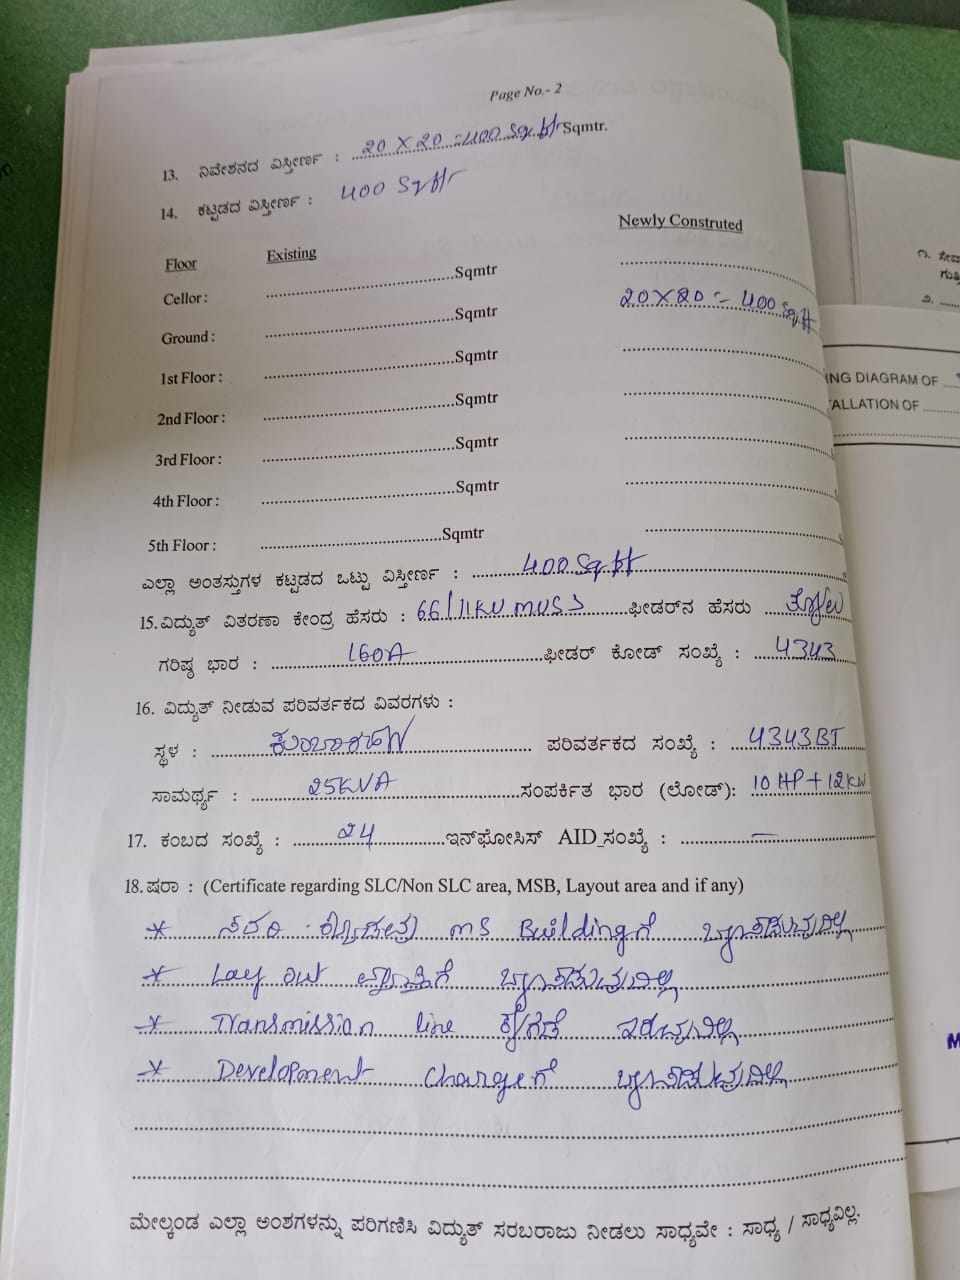 Page No.- 2
13. ನಿವೇಶನದ ವಿಸ್ತೀರ್ಣ : 20 X 20 = 400 Sq ft Sqmtr.
14. ಕಟ್ಟಡದ ವಿಸ್ತೀರ್ಣ : 400 Sq ft
Floor Existing Newly Construted
Cellor : ....................Sqmtr ....................
Ground : ....................Sqmtr 20 X 20 = 400 Sq ft
1st Floor : ....................Sqmtr ....................
2nd Floor : ....................Sqmtr ....................
3rd Floor : ....................Sqmtr ....................
4th Floor : ....................Sqmtr ....................
5th Floor : ....................Sqmtr ....................
ಎಲ್ಲಾ ಅಂತಸ್ತುಗಳ ಕಟ್ಟಡದ ಒಟ್ಟು ವಿಸ್ತೀರ್ಣ : 400 Sq ft
15. ವಿದ್ಯುತ್ ವಿತರಣಾ ಕೇಂದ್ರ ಹೆಸರು : 66/11KV MUSS ಫೀಡರ್‌ನ ಹೆಸರು
ಗರಿಷ್ಠ ಭಾರ : 160A ಫೀಡರ್ ಕೋಡ್ ಸಂಖ್ಯೆ : 4343
16. ವಿದ್ಯುತ್ ನೀಡುವ ಪರಿವರ್ತಕದ ವಿವರಗಳು :
ಸ್ಥಳ : ಪರಿವರ್ತಕದ ಸಂಖ್ಯೆ : 4343BT
ಸಾಮರ್ಥ್ಯ : 25KVA ಸಂಪರ್ಕಿತ ಭಾರ (ಲೋಡ್): 10 HP + 12 KW
17. ಕಂಬದ ಸಂಖ್ಯೆ : 24 ಇನ್‌ಫೋಸಿಸ್ AID ಸಂಖ್ಯೆ : —
18. ಷರಾ : (Certificate regarding SLC/Non SLC area, MSB, Layout area and if any)
* ಸದರಿ ಕಟ್ಟಡವು MS Buildingಗೆ ಒಳಪಡುವುದಿಲ್ಲ
* Lay out ವ್ಯಾಪ್ತಿಗೆ ಒಳಪಡುವುದಿಲ್ಲ
* Transmission line ಕೆಳಗಡೆ ಇರುವುದಿಲ್ಲ
* Development Chargeಗೆ ಒಳಪಡುವುದಿಲ್ಲ
ಮೇಲ್ಕಂಡ ಎಲ್ಲಾ ಅಂಶಗಳನ್ನು ಪರಿಗಣಿಸಿ ವಿದ್ಯುತ್ ಸರಬರಾಜು ನೀಡಲು ಸಾಧ್ಯವೇ : ಸಾಧ್ಯ / ಸಾಧ್ಯವಿಲ್ಲ.
೧. ಸೇವಾ
೨.
ING DIAGRAM OF
ALLATION OF
M